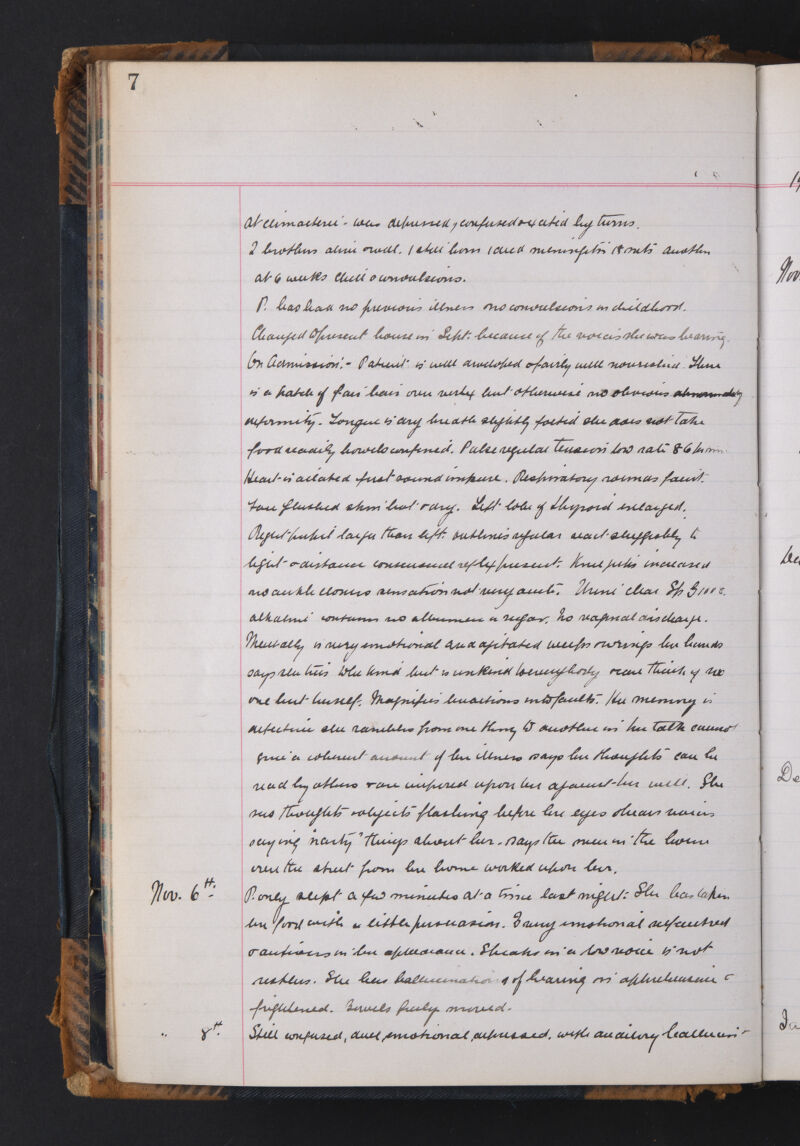 7
at climacteric - was depressed, confused & excited by turns.
2 brothers alive & well. 1 still born 1 died meningitis 18 mts another
at 6 weeks chill & convulsions.
P. has had no previous illness & no convulsions in childhood.
Changed to present house in Sept. because of the voices she was hearing.
On Admission:- Patient is well developed & fairly well nourished. There
is a patch of fair hair over vertex but otherwise no obvious abnormality
deformity. Tongue is dry breath slightly foetid she does not take
food readily bowels confined. Pulse regular tension low rate 86 per min
Heart is dilated first sound impure. Respiratory sounds faint.
Face flushed skin hot & dry. Left lobe of thyroid enlarged.
Right pupil larger than left. outlines regular react sluggishly to
light & distance consensual reflex present. Knee jerks increased
no ankle clonus sensation not very acute. Urine clear Sp. G
alkaline contains no albumen or sugar. No vaginal discharge.
Mentally is very emotional and agitated weeps & wrings her hands
says she tries to be kind but is unkind to everybody & can think of no
one but herself. Magnifies her actions into faults. Her memory is
defective she rambles from one thing to another in her talk cannot
give a coherent account of her illness & says her thoughts can be
read by others & are imposed upon her against her will. She
sees thoughts & objects flashing before her eyes & hears voices
saying "nasty" things about her. says the men in the house
over the street from her home worked upon her.
Nov. 6th. P. only slept a few minutes at a time last night. She has taken
her food with a little persuasion. Is very emotional self centred
& anxious in her appearance. Speaks in a low voice is not
restless. She has hallucinations of hearing & is apprehensive &
frightened. Bowels freely moved.
" 8th. Still confused, dull, emotional, depressed, with auditory hallucin-
19
Nov.
De
De
Ja